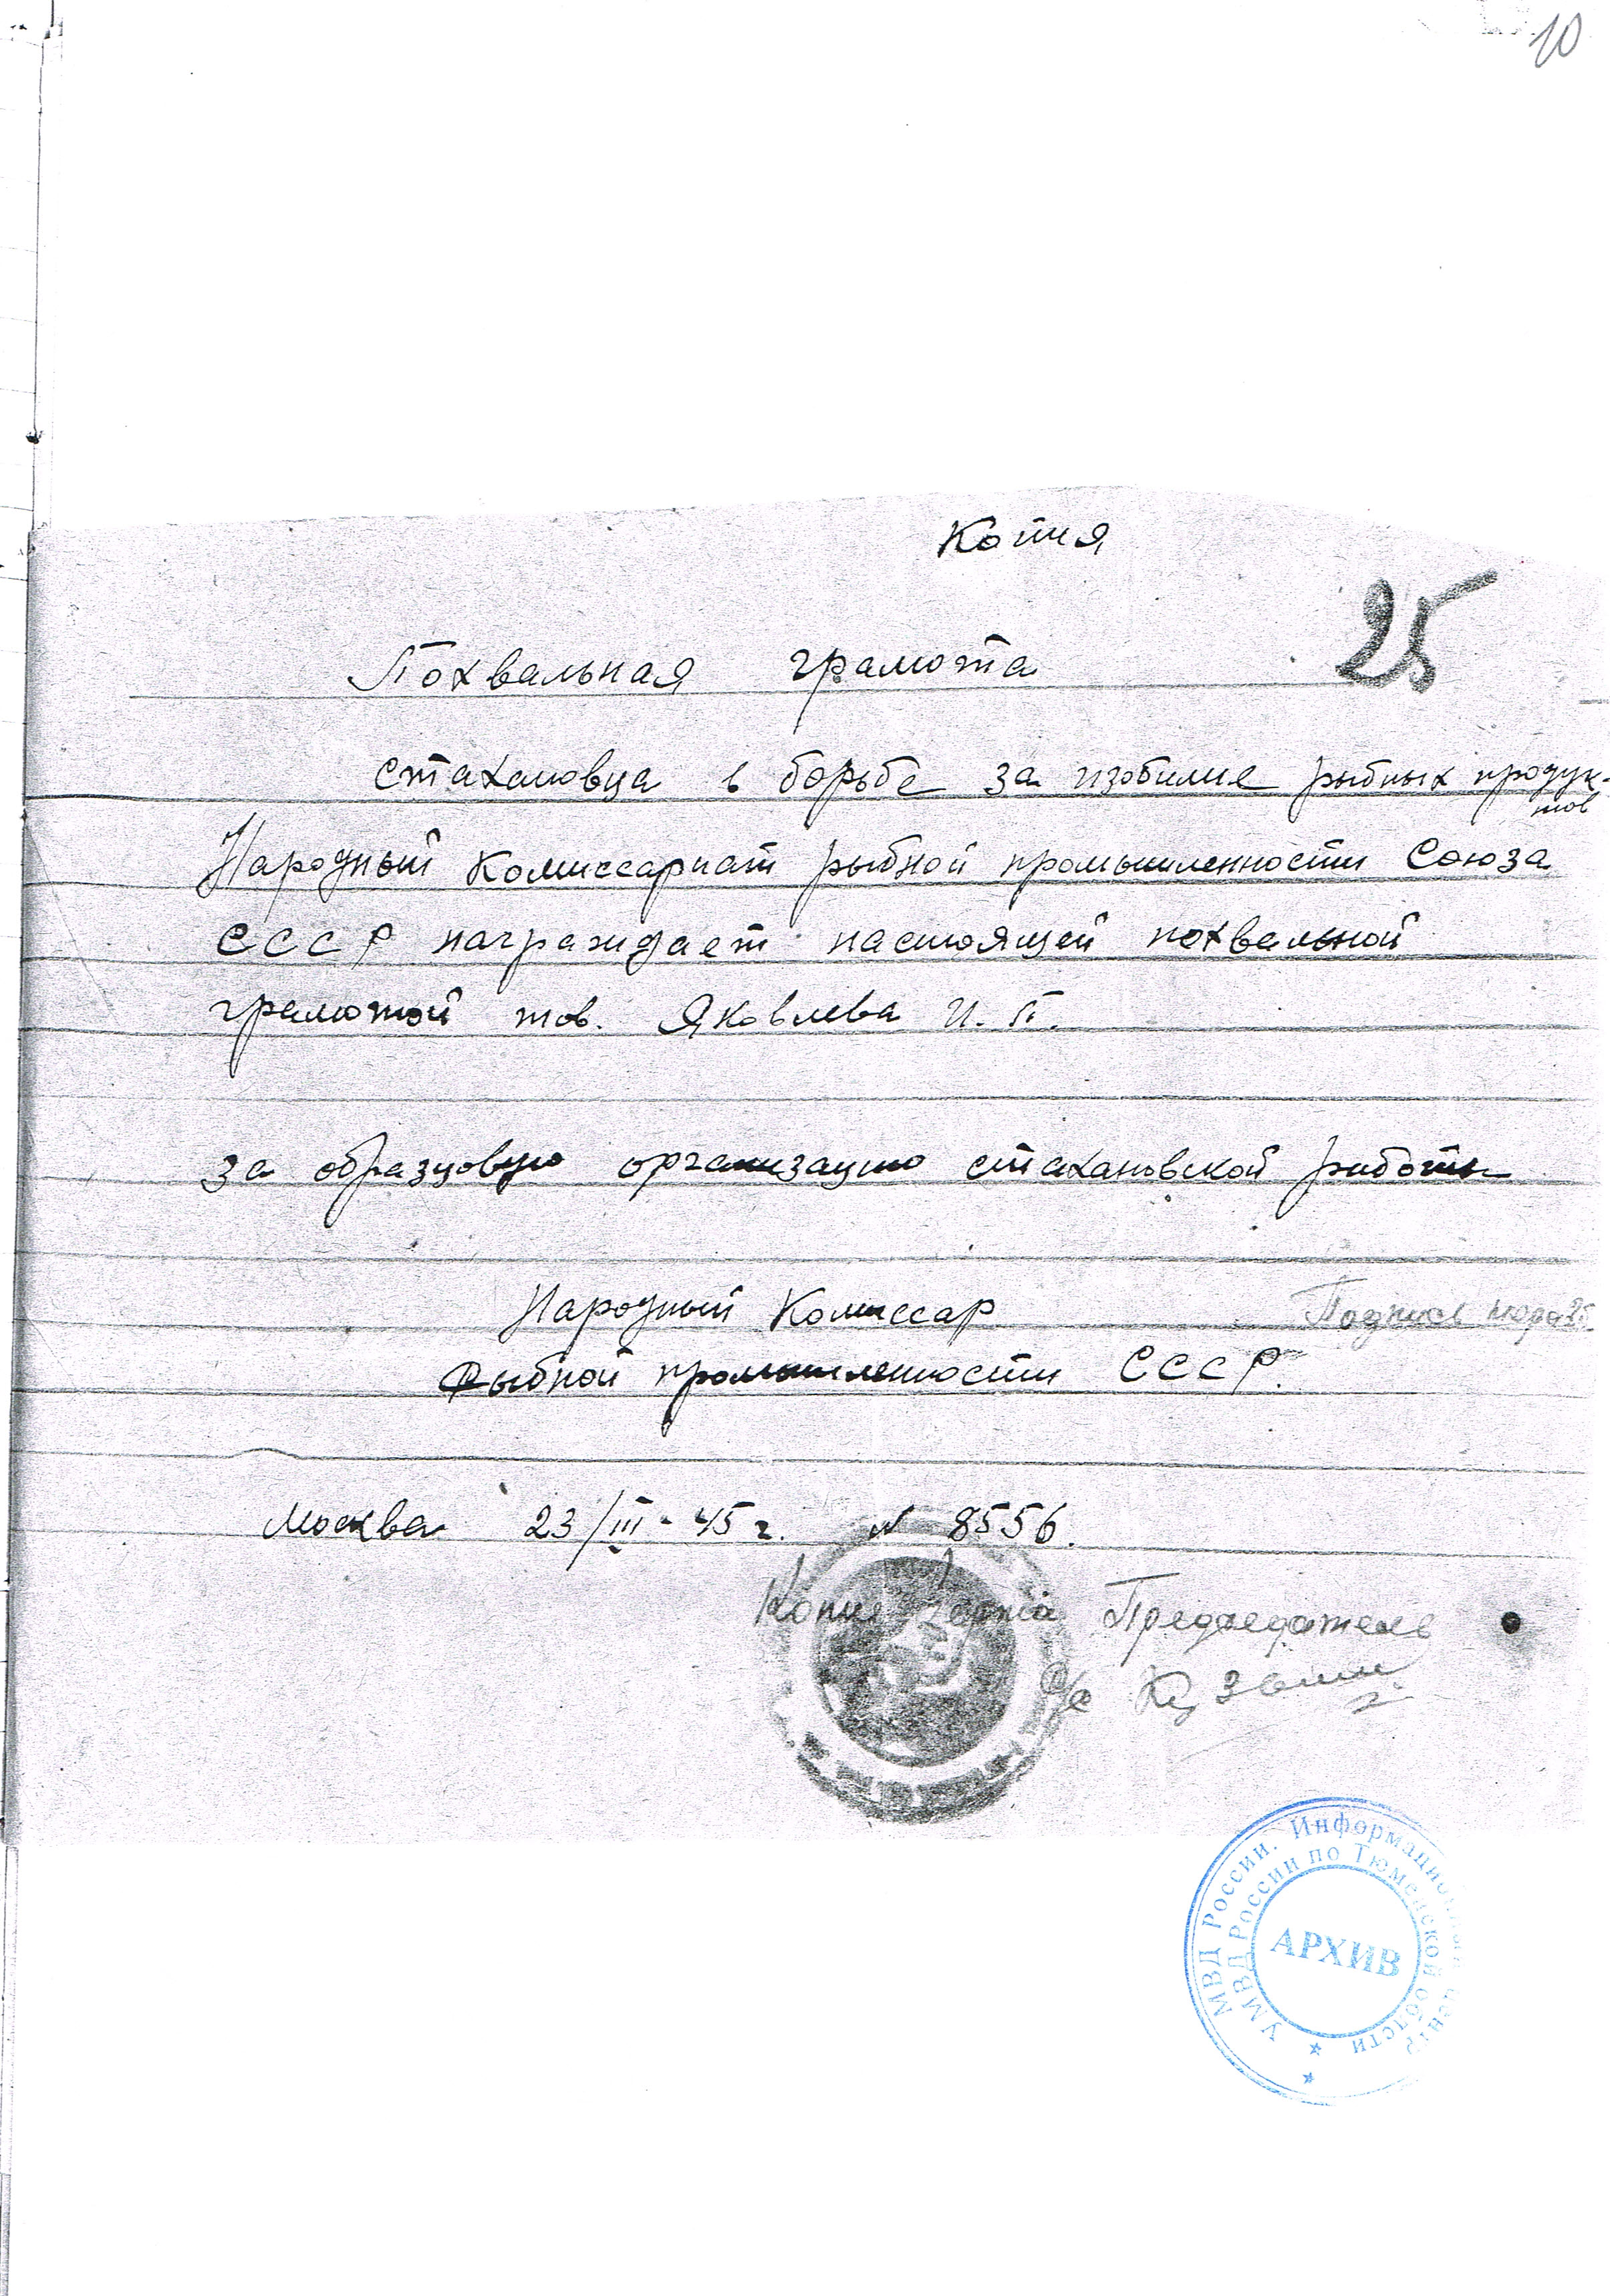 10
Копия
25
Похвальная грамота
Стахановца в борьбе за изобилие рыбных продук-
тов
Народный Комиссариат рыбной промышленности Союза
СССР награждает настоящей похвальной
грамотой тов. Яковлева И. П.
за образцовую организацию стахановской работы
Народный Комиссар Подпись
Рыбной промышленности СССР.
Москва 23/III-45 г. N 8556.
Копия верна Председатель
с/с
МВД России. Информационный центр
УМВД России по Тюменской области
АРХИВ